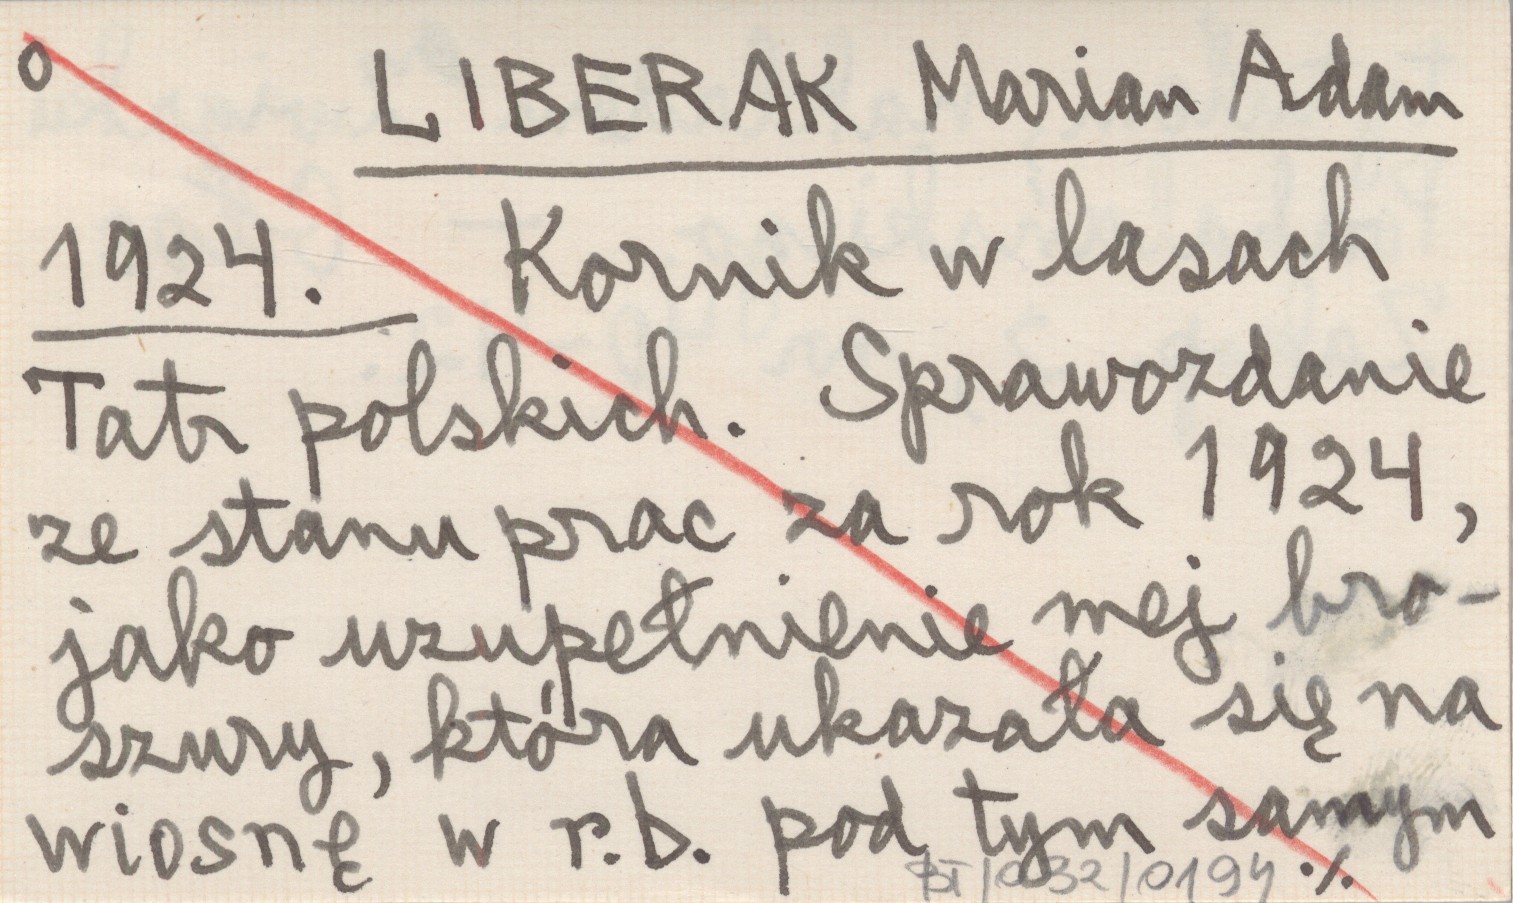 o LIBERAK Marian Adam
1924. Kornik w lasach
Tatr polskich. Sprawozdanie
ze stanu prac za rok 1924,
jako uzupełnienie mej bro-
szury, która ukazała się na
wiosnę w r.b. pod tym samym
BT/032/0194 ./.